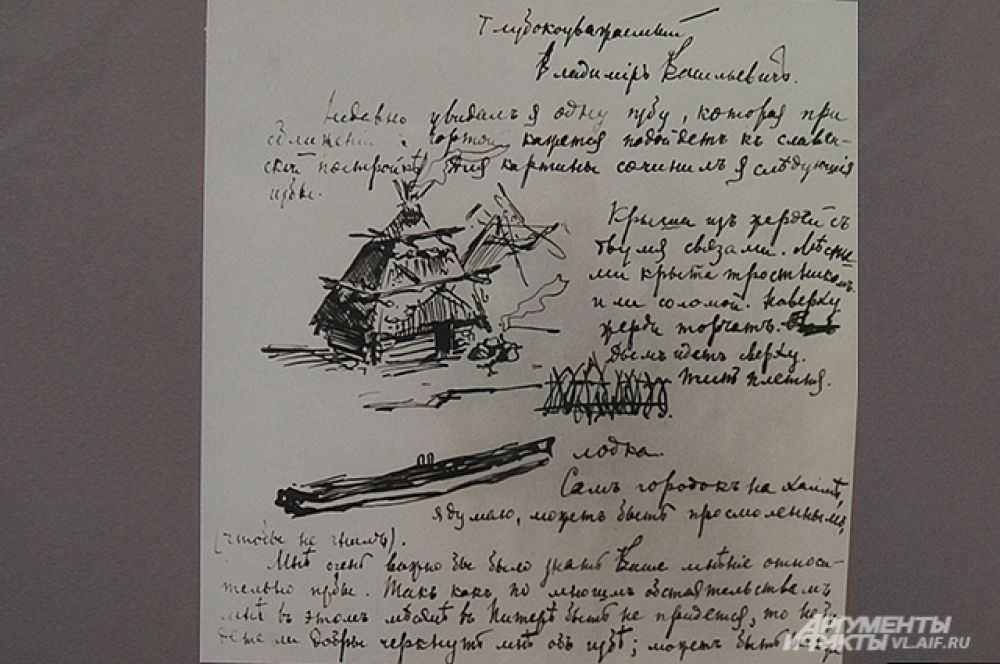 Глубокоуважаемый
Владимiръ Васильевичъ.
Недавно увидалъ я одну избу, которая при
сближенiи съ юртой кажется подойдетъ къ славян-
ской постройкѣ. Для картины сочинилъ я слѣдующiя
избы.
Крыши изъ жердей съ
двумя связами.
ми крыта тростникомъ
или соломой. Наверху
жерди торчатъ.
Дымъ идетъ сверху.
Тынъ плетня.
лодка.
Самъ городокъ на холмѣ,
я думаю, можетъ быть просмоленнымъ,
(чтобы не гнилъ).
Мнѣ очень важно бы было знать Ваше мнѣнiе относи-
тельно избы. Такъ какъ по многимъ обстоятельствамъ
мнѣ въ этомъ мѣсяцѣ въ Питерѣ быть не придется, то не бу-
дете ли добры черкнуть мнѣ объ избѣ; можетъ быть
АРГУМЕНТЫ
И ФАКТЫ VL.AIF.RU